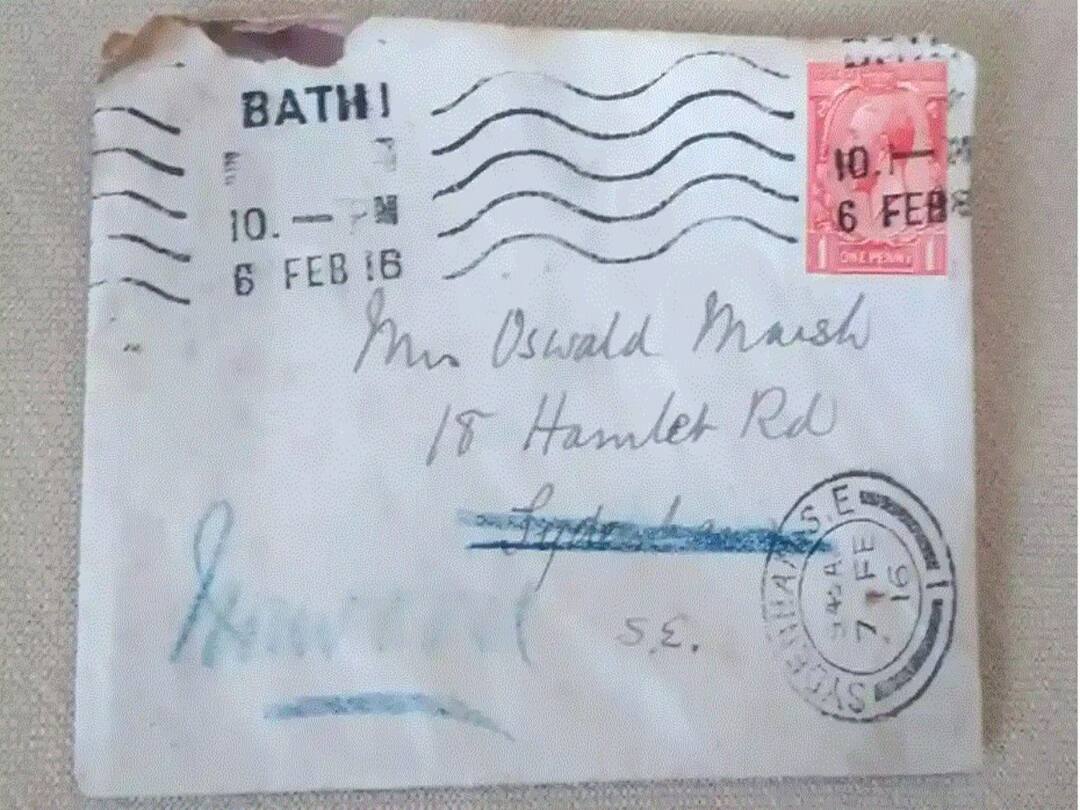 BATH 1
10. — PM
6 FEB 16
10. —
6 FEB
ONE PENNY
Mrs Oswald Marsh
18 Hamlet Rd
Sydenham
S.E.
SYDENHAM S.E
9 45 A
7 FE
16
Norwood